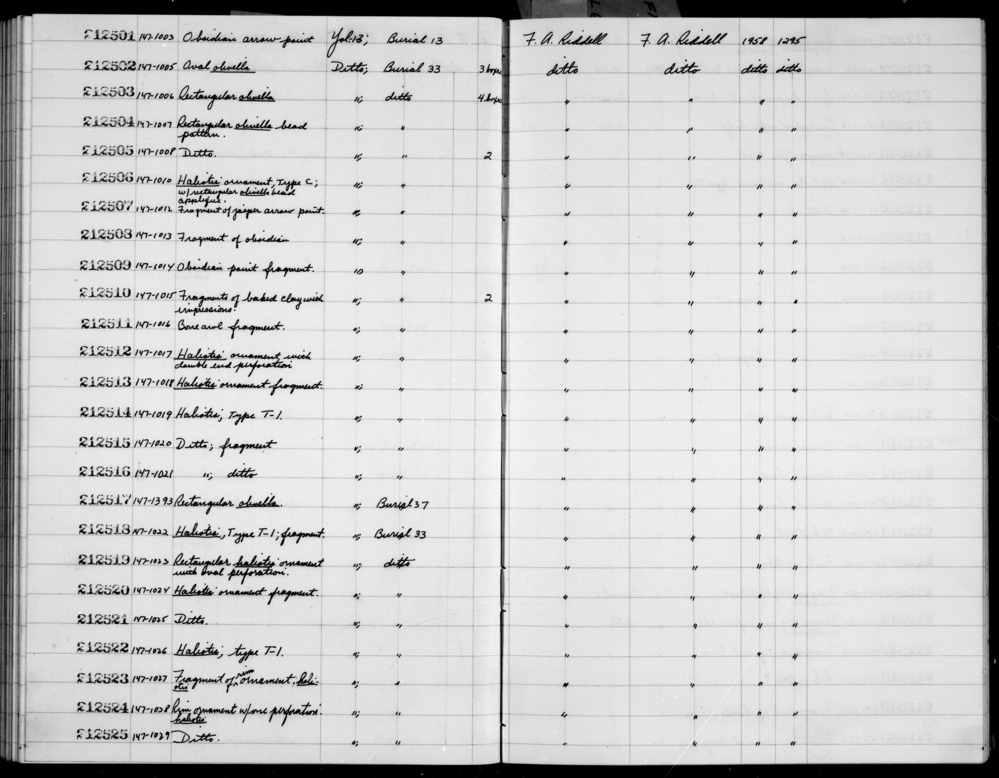 212501 147-1003 Obsidian arrow point Yol.13; Burial 13 F. A. Riddell F. A. Riddell 1958 1295
212502 147-1005 Oval olivella Ditto; Burial 33 3 boxes ditto ditto ditto ditto
212503 147-1006 Rectangular olivella "; ditto 4 boxes " " " "
212504 147-1007 Rectangular olivella bead "; " " " " "
pattern.
212505 147-1008 Ditto. "; " 2 " " " "
212506 147-1010 Haliotis ornament, Type C; "; " " " " "
w/rectangular olivella bead
applique.
212507 147-1012 Fragment of jasper arrow point. "; " " " " "
212508 147-1013 Fragment of obsidian "; " " " " "
212509 147-1014 Obsidian point fragment. "; " " " " "
212510 147-1015 Fragments of baked clay with "; " 2 " " " "
impressions.
212511 147-1016 Bone awl fragment. "; " " " " "
212512 147-1017 Haliotis ornament with "; " " " " "
double end perforation
212513 147-1018 Haliotis ornament fragment. "; " " " " "
212514 147-1019 Haliotis; Type T-1. "; " " " " "
212515 147-1020 Ditto; fragment "; " " " " "
212516 147-1021 "; ditto "; " " " " "
212517 147-1393 Rectangular olivella. "; Burial 37 " " " "
212518 147-1022 Haliotis, Type T-1; fragment. "; Burial 33 " " " "
212519 147-1023 Rectangular haliotis ornament "; ditto " " " "
with oval perforation.
212520 147-1024 Haliotis ornament fragment. "; " " " " "
212521 147-1025 Ditto. "; " " " " "
212522 147-1026 Haliotis; type T-1. "; " " " " "
212523 147-1027 Fragment of rim ornament, hali- "; " " " " "
otis
212524 147-1028 Rim ornament w/one perforation. "; " " " " "
haliotis
212525 147-1029 Ditto. "; " " " " "